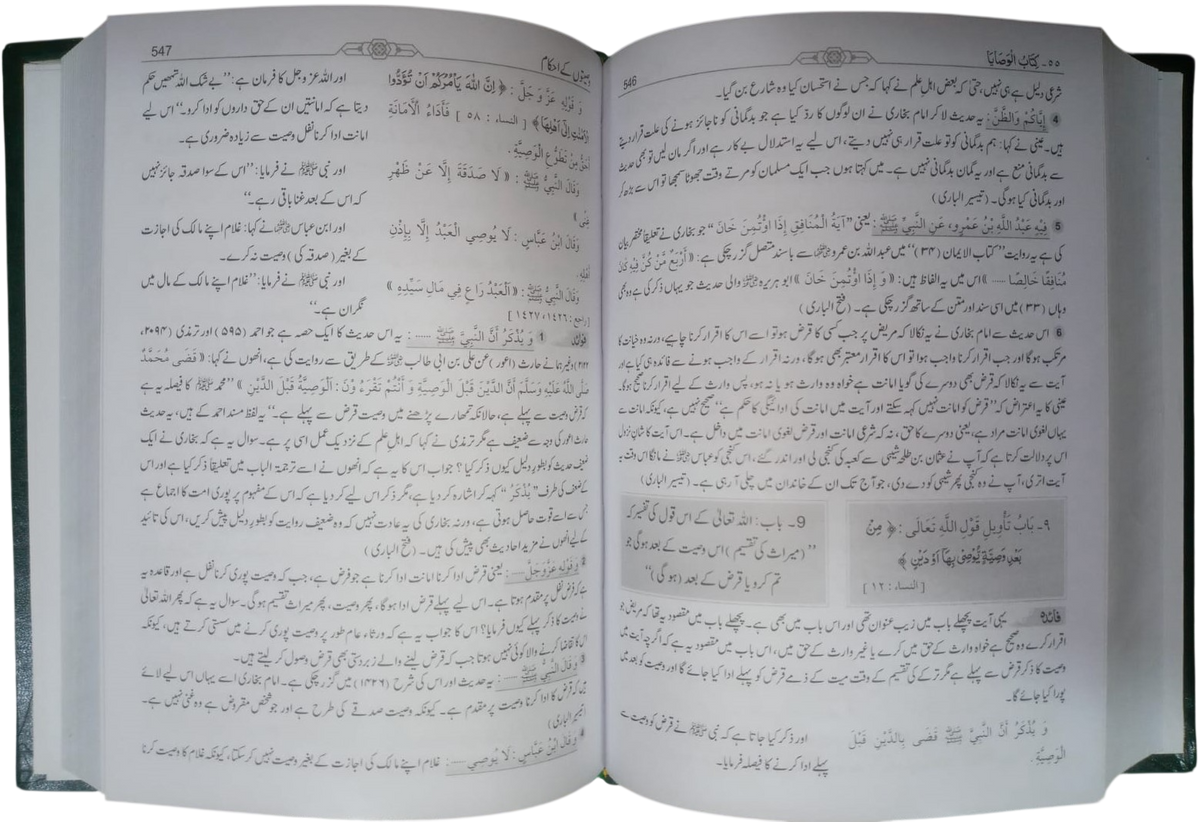 546
٥٥۔ كِتَابُ الْوَصَايَا
شرعی دلیل ہے ہی نہیں، حتیٰ کہ بعض اہل علم نے کہا کہ جس نے استحسان کیا وہ شارع بن گیا۔
4 إِيَّاكُمْ وَالظَّنَّ: یہ حدیث لا کر امام بخاری نے ان لوگوں کا رد کیا ہے جو بدگمانی کو ناجائز ہونے کی علت قرار دیتے
ہیں۔ عینی نے کہا: ہم بدگمانی کو تو علت قرار ہی نہیں دیتے، اس لیے یہ استدلال بے کار ہے اور اگر مان لیں تو بھی حدیث
سے بدگمانی منع ہے اور یہ گمان بدگمانی نہیں ہے۔ میں کہتا ہوں جب ایک مسلمان کو مرتے وقت جھوٹا سمجھا تو اس سے بڑھ کر
اور بدگمانی کیا ہوگی۔ (تیسیر الباری)
5 فِيْهِ عَبْدُ اللَّهِ بْنُ عَمْرٍو، عَنِ النَّبِيِّ ﷺ: یعنی ”آيَةُ الْمُنَافِقِ إِذَا اؤْتُمِنَ خَانَ“ جو بخاری نے تعلیقاً مختصر بیان
کی ہے یہ روایت ”کتاب الایمان (۳۴)“ میں عبداللہ بن عمرو ﷜ سے باسند متصل گزر چکی ہے: «أَرْبَعٌ مَنْ كُنَّ فِيْهِ كَانَ
مُنَافِقًا خَالِصًا ......» اس میں یہ الفاظ ہیں: «وَ إِذَا اؤْتُمِنَ خَانَ» ابو ہریرہ ﷜ والی حدیث جو یہاں ذکر کی ہے وہ بھی
وہاں (۳۳) میں اسی سند اور متن کے ساتھ گزر چکی ہے۔ (فتح الباری)
6 اس حدیث سے امام بخاری نے یہ نکالا کہ مریض پر جب کسی کا قرض ہو تو اسے اس کا اقرار کرنا چاہیے، ورنہ وہ خیانت کا
مرتکب ہوگا اور جب اقرار کرنا واجب ہوا تو اس کا اقرار معتبر بھی ہوگا، ورنہ اقرار کے واجب ہونے سے فائدہ ہی کیا ہے اور
آیت سے یہ نکالا کہ قرض بھی دوسرے کی گویا امانت ہے خواہ وہ وارث ہو یا نہ ہو، پس وارث کے لیے اقرار کرنا صحیح ہوگا۔
عینی کا یہ اعتراض کہ ”قرض کو امانت نہیں کہہ سکتے اور آیت میں امانت کی ادائیگی کا حکم ہے“ صحیح نہیں ہے، کیونکہ امانت سے
یہاں لغوی امانت مراد ہے، یعنی دوسرے کا حق، نہ کہ شرعی امانت اور قرض لغوی امانت میں داخل ہے۔ اس آیت کا شان نزول
اس پر دلالت کرتا ہے کہ آپ نے عثمان بن طلحہ شیبی سے کعبہ کی کنجی لی اور اندر گئے، اس کنجی کو عباس ﷜ نے مانگا اس وقت یہ
آیت اتری، آپ نے وہ کنجی پھر شیبی کو دے دی، جو آج تک ان کے خاندان میں چلی آ رہی ہے۔ (تیسیر الباری)
٩۔ بَابُ تَأْوِيلِ قَوْلِ اللَّهِ تَعَالَى: ﴿ مِنْ
بَعْدِ وَصِيَّةٍ يُّوْصِيْ بِهَا اَوْ دَيْنٍ ﴾
[النساء: ١٢]
9۔ باب: اللہ تعالیٰ کے اس قول کی تفسیر کہ
”(میراث کی تقسیم) اس وصیت کے بعد ہوگی جو
تم کر دیا قرض کے بعد (ہوگی)“
فائدہ یہی آیت پچھلے باب میں زیب عنوان تھی اور اس باب میں بھی ہے۔ پچھلے باب میں مقصود یہ تھا کہ مریض جو
اقرار کرے وہ صحیح ہے خواہ وارث کے حق میں کرے یا غیر وارث کے حق میں، اس باب میں مقصود یہ ہے کہ اگرچہ آیت میں
وصیت کا ذکر قرض سے پہلے ہے مگر ترکے کی تقسیم کے وقت میت کے ذمے قرض کو پہلے ادا کیا جائے گا اور وصیت کو بعد میں
پورا کیا جائے گا۔
وَ يُذْكَرُ أَنَّ النَّبِيَّ ﷺ قَضَى بِالدَّيْنِ قَبْلَ
الْوَصِيَّةِ.
اور ذکر کیا جاتا ہے کہ نبی ﷺ نے قرض کو وصیت سے
پہلے ادا کرنے کا فیصلہ فرمایا۔
547
وصیتوں کے احکام
وَ قَوْلِهِ عَزَّ وَ جَلَّ: ﴿ اِنَّ اللّٰهَ يَاْمُرُكُمْ اَنْ تُؤَدُّوا
الْاَمٰنٰتِ اِلٰۤى اَهْلِهَا ﴾ [النساء: ٥٨] فَأَدَاءُ الْأَمَانَةِ
أَحَقُّ مِنْ تَطَوُّعِ الْوَصِيَّةِ.
اور اللہ عز وجل کا فرمان ہے: ”بے شک اللہ تمھیں حکم
دیتا ہے کہ امانتیں ان کے حق داروں کو ادا کرو۔“ اس لیے
امانت ادا کرنا نفل وصیت سے زیادہ ضروری ہے۔
وَقَالَ النَّبِيُّ ﷺ: «لَا صَدَقَةَ إِلَّا عَنْ ظَهْرِ
غِنًى»
اور نبی ﷺ نے فرمایا: ”اس کے سوا صدقہ جائز نہیں
کہ اس کے بعد غنا باقی رہے۔“
وَقَالَ ابْنُ عَبَّاسٍ: لَا يُوصِي الْعَبْدُ إِلَّا بِإِذْنِ
أَهْلِهِ.
اور ابن عباس ﷠ نے کہا: غلام اپنے مالک کی اجازت
کے بغیر (صدقہ کی) وصیت نہ کرے۔
وَقَالَ النَّبِيُّ ﷺ: «الْعَبْدُ رَاعٍ فِي مَالِ سَيِّدِهِ»
[راجع: ١٤٢٦، ١٤٢٧]
اور نبی ﷺ نے فرمایا: ”غلام اپنے مالک کے مال میں
نگران ہے۔“
فوائد 1 وَ يُذْكَرُ أَنَّ النَّبِيَّ ﷺ ......: یہ اس حدیث کا ایک حصہ ہے جو احمد (۵۹۵) اور ترمذی (۲۰۹۴،
۲۱۲۲) وغیرہما نے حارث (اعور) عن علی بن ابی طالب ﷜ کے طریق سے روایت کی ہے، انھوں نے کہا: «قَضَى مُحَمَّدٌ
صَلَّى اللَّهُ عَلَيْهِ وَسَلَّمَ أَنَّ الدَّيْنَ قَبْلَ الْوَصِيَّةِ وَ أَنْتُمْ تَقْرَءُوْنَ: الْوَصِيَّةُ قَبْلَ الدَّيْنِ» ”محمد ﷺ کا فیصلہ یہ ہے
کہ قرض وصیت سے پہلے ہے، حالانکہ تمھارے پڑھنے میں وصیت قرض سے پہلے ہے۔“ یہ لفظ مسند احمد کے ہیں، یہ حدیث
حارث اعور کی وجہ سے ضعیف ہے مگر ترمذی نے کہا کہ اہل علم کے نزدیک عمل اسی پر ہے۔ سوال یہ ہے کہ بخاری نے ایک
ضعیف حدیث کو بطور دلیل کیوں ذکر کیا؟ جواب اس کا یہ ہے کہ انھوں نے اسے ترجمۃ الباب میں تعلیقاً ذکر کیا ہے اور اس
کے ضعف کی طرف ”يُذْكَرُ“ کہہ کر اشارہ کر دیا ہے، مگر ذکر اس لیے کر دیا ہے کہ اس کے مفہوم پر پوری امت کا اجماع ہے
جس سے اسے قوت حاصل ہوتی ہے، ورنہ بخاری کی یہ عادت نہیں کہ وہ ضعیف روایت کو بطور دلیل پیش کریں، اس کی تائید
کے لیے انھوں نے مزید احادیث بھی پیش کی ہیں۔ (فتح الباری)
2 وَ قَوْلِهِ عَزَّ وَ جَلَّ ......: یعنی قرض ادا کرنا امانت ادا کرنا ہے جو فرض ہے، جب کہ وصیت پوری کرنا نفل ہے اور قاعدہ یہ
ہے کہ فرض نفل پر مقدم ہوتا ہے۔ اس لیے پہلے قرض ادا ہوگا، پھر وصیت، پھر میراث تقسیم ہوگی۔ سوال یہ ہے کہ پھر اللہ تعالیٰ
نے وصیت کا ذکر پہلے کیوں فرمایا؟ اس کا جواب یہ ہے کہ ورثاء عام طور پر وصیت پوری کرنے میں سستی کرتے ہیں، کیونکہ
اس کا تقاضا کرنے والا کوئی نہیں ہوتا جب کہ قرض لینے والے زبردستی بھی قرض وصول کر لیتے ہیں۔
3 وَقَالَ النَّبِيُّ ﷺ ......: یہ حدیث اور اس کی شرح (۱۴۲۶) میں گزر چکی ہے۔ امام بخاری اسے یہاں اس لیے لائے
ہیں کہ قرض کا ادا کرنا وصیت پر مقدم ہے۔ کیونکہ وصیت صدقے کی طرح ہے اور جو شخص مقروض ہے وہ غنی نہیں ہے۔
(تیسیر الباری)
4 وَقَالَ ابْنُ عَبَّاسٍ: لَا يُوصِي ......: غلام اپنے مالک کی اجازت کے بغیر وصیت نہیں کر سکتا، کیونکہ غلام کا وصیت کرنا